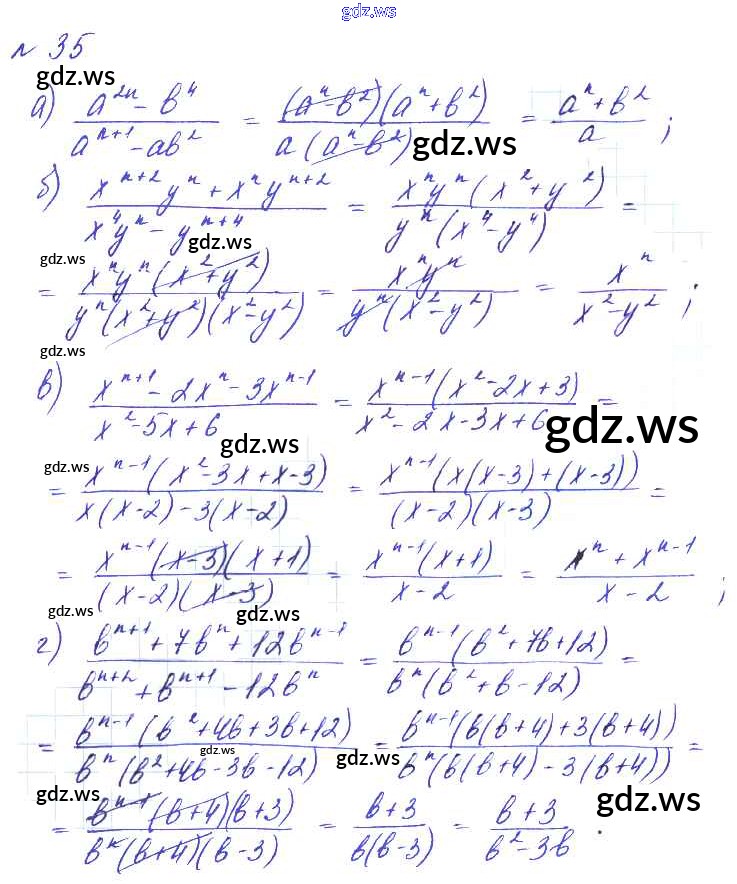 gdz.ws
№ 35
gdz.ws
а) (a^{2n} - b^4)/(a^{n+1} - ab^2) = ((a^n - b^2)(a^n + b^2))/(a(a^n - b^2)) = (a^n + b^2)/a ;
gdz.ws
б) (x^{n+2}y^n + x^n y^{n+2})/(x^4y^n - y^{n+4}) = (x^n y^n(x^2 + y^2))/(y^n(x^4 - y^4)) =
gdz.ws
gdz.ws
= (x^n y^n(x^2 + y^2))/(y^n(x^2 + y^2)(x^2 - y^2)) = (x^n y^n)/(y^n(x^2 - y^2)) = x^n/(x^2 - y^2) ;
gdz.ws
в) (x^{n+1} - 2x^n - 3x^{n-1})/(x^2 - 5x + 6) = (x^{n-1}(x^2 - 2x + 3))/(x^2 - 2x - 3x + 6) =
gdz.ws
gdz.ws
gdz.ws
= (x^{n-1}(x^2 - 3x + x - 3))/(x(x-2) - 3(x-2)) = (x^{n-1}(x(x-3) + (x-3)))/((x-2)(x-3)) =
= (x^{n-1}(x-3)(x+1))/((x-2)(x-3)) = (x^{n-1}(x+1))/(x-2) = (x^n + x^{n-1})/(x-2) ;
gdz.ws
gdz.ws
г) (b^{n+1} + 7b^n + 12b^{n-1})/(b^{n+2} + b^{n+1} - 12b^n) = (b^{n-1}(b^2 + 7b + 12))/(b^n(b^2 + b - 12)) =
= (b^{n-1}(b^2 + 4b + 3b + 12))/(b^n(b^2 + 4b - 3b - 12)) = (b^{n-1}(b(b+4) + 3(b+4)))/(b^n(b(b+4) - 3(b+4))) =
gdz.ws
gdz.ws
gdz.ws
gdz.ws
= (b^{n-1}(b+4)(b+3))/(b^n(b+4)(b-3)) = (b+3)/(b(b-3)) = (b+3)/(b^2 - 3b) .
gdz.ws